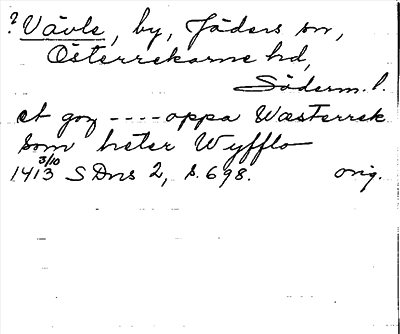 ? Vävle, by, Jäders sn,
Österrekarne hd,
Söderm. l.
et goz ---- oppa Wæsterrek
som heter Wyfflo
1413 3/10 SDns 2, s. 698. orig.